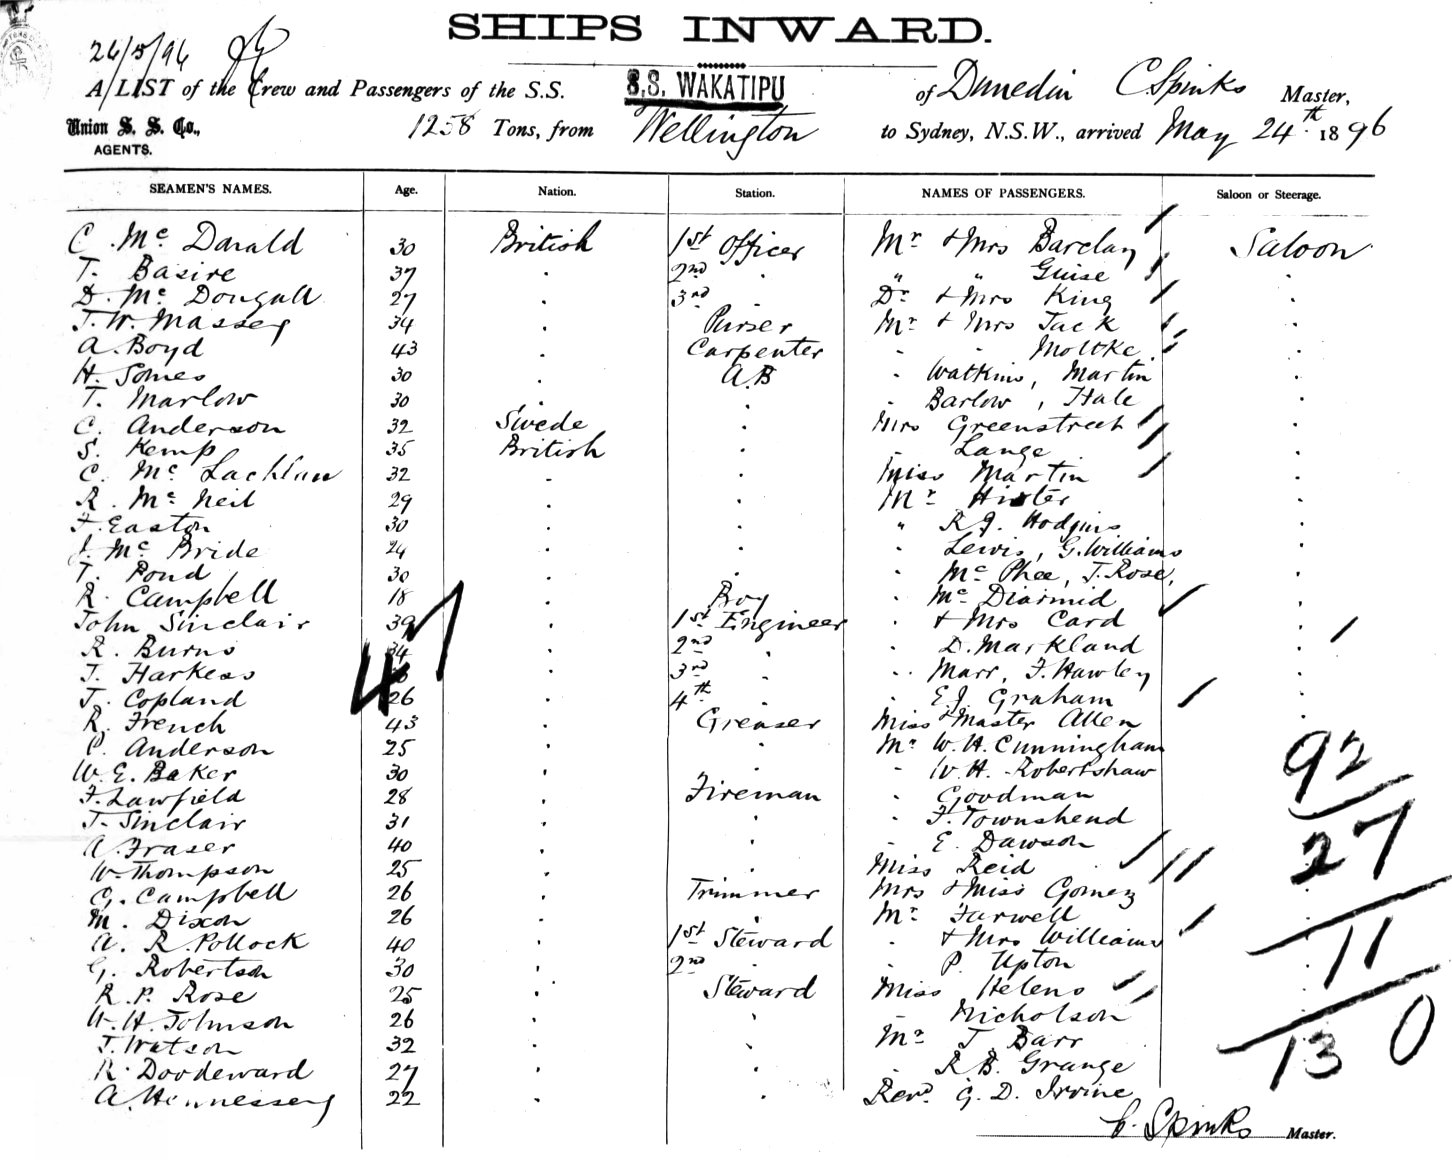 SHIPS INWARD.
26/5/96
A LIST of the Crew and Passengers of the S.S. S.S. WAKATIPU of Dunedin C Spinks Master,
Union S. S. Co., 1258 Tons, from Wellington to Sydney, N.S.W., arrived May 24th 1896
AGENTS.
SEAMEN'S NAMES. Age. Nation. Station. NAMES OF PASSENGERS. Saloon or Steerage.
C. Mc Donald 30 British 1st Officer Mr & Mrs Barclay Saloon
T. Basire 37 . 2nd . " " Guise .
D. Mc Dougall 27 . 3rd . Dr & Mrs King .
T. W. Massey 34 . Purser Mr & Mrs Jack .
A. Boyd 43 . Carpenter . . Moltke .
H. Somes 30 . A.B . Watkins, Martin .
T. Marlow 30 . . . Barlow, Hale .
C. Anderson 32 Swede . Mrs Greenstreet .
S. Kemp 35 British . - Lange .
C. Mc Lachlan 32 . . Miss Martin .
R. Mc Neil 29 . . Mr .
F. Easton 30 . . " R J. Hodgins .
J. Mc Bride 24 . . . Lewis, G. Williams .
T. Pond 30 . . . Mc Phee, T. Rose, .
R. Campbell 18 . Boy . Mc Diarmid .
John Sinclair 39 . 1st Engineer . & Mrs Card .
R. Burns 34 . 2nd . . D. Markland .
T. Harkess . 3rd . . Marr, F. Hawley .
47
J. Copland 26 . 4th . . E. J. Graham .
R. French 43 . Greaser Miss & Master Allen .
P. Anderson 25 . . Mr W. H. Cunningham
W. E. Baker 30 . . - W. H. Robertshaw
92
F. Lawfield 28 . Fireman . Goodman
T. Sinclair 31 . . . F. Townshend
27
A. Fraser 40 . . . E. Dawson
W. Thompson 25 . . Miss Reid
G. Campbell 26 . Trimmer Mrs & Miss Gomez
M. Dixon 26 . . Mr Farwell
A. R. Pollock 40 . 1st Steward . & Mrs Williams
11
G. Robertson 30 . 2nd . . P. Upton
R. P. Rose 25 . Steward Miss Helens
W. H. Johnson 26 . . - Nicholson
130
T. Watson 32 . . Mr J. Barr
R. Doodeward 27 . . . R B. Grange
A. Hennessey 22 . . Revd. G. D. Irvine
C. Spinks Master.